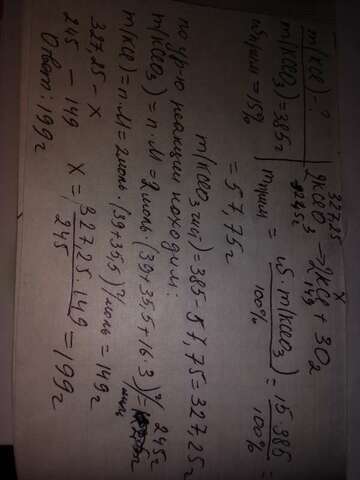 m(KCl) - ?
m(KClO₃) = 385г
wприм = 15%
327,25 x
2KClO₃ → 2KCl + 3O₂
245г 149
mприм = w · m(KClO₃) / 100% = 15 · 385 / 100% =
= 57,75г
m(KClO₃ чист) = 385 - 57,75 = 327,25г
по ур-ю реакции находим:
m(KClO₃) = n · M = 2моль · (39+35,5+16·3) г/моль = 245г
m(KCl) = n · M = 2моль · (39+35,5) г/моль = 149г
327,25 - x
245 - 149 x = 327,25 · 149 / 245 = 199г
Ответ: 199г